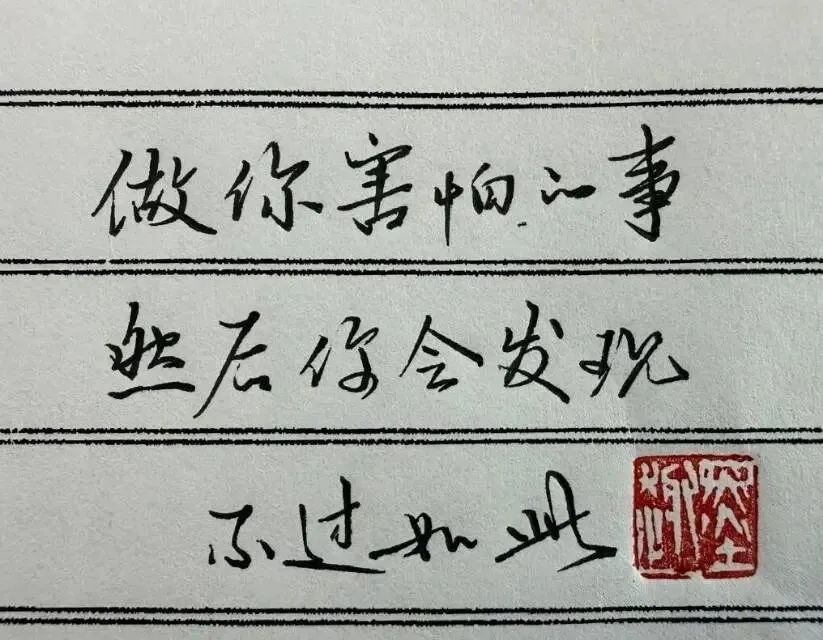 做你害怕的事
然后你会发现
不过如此